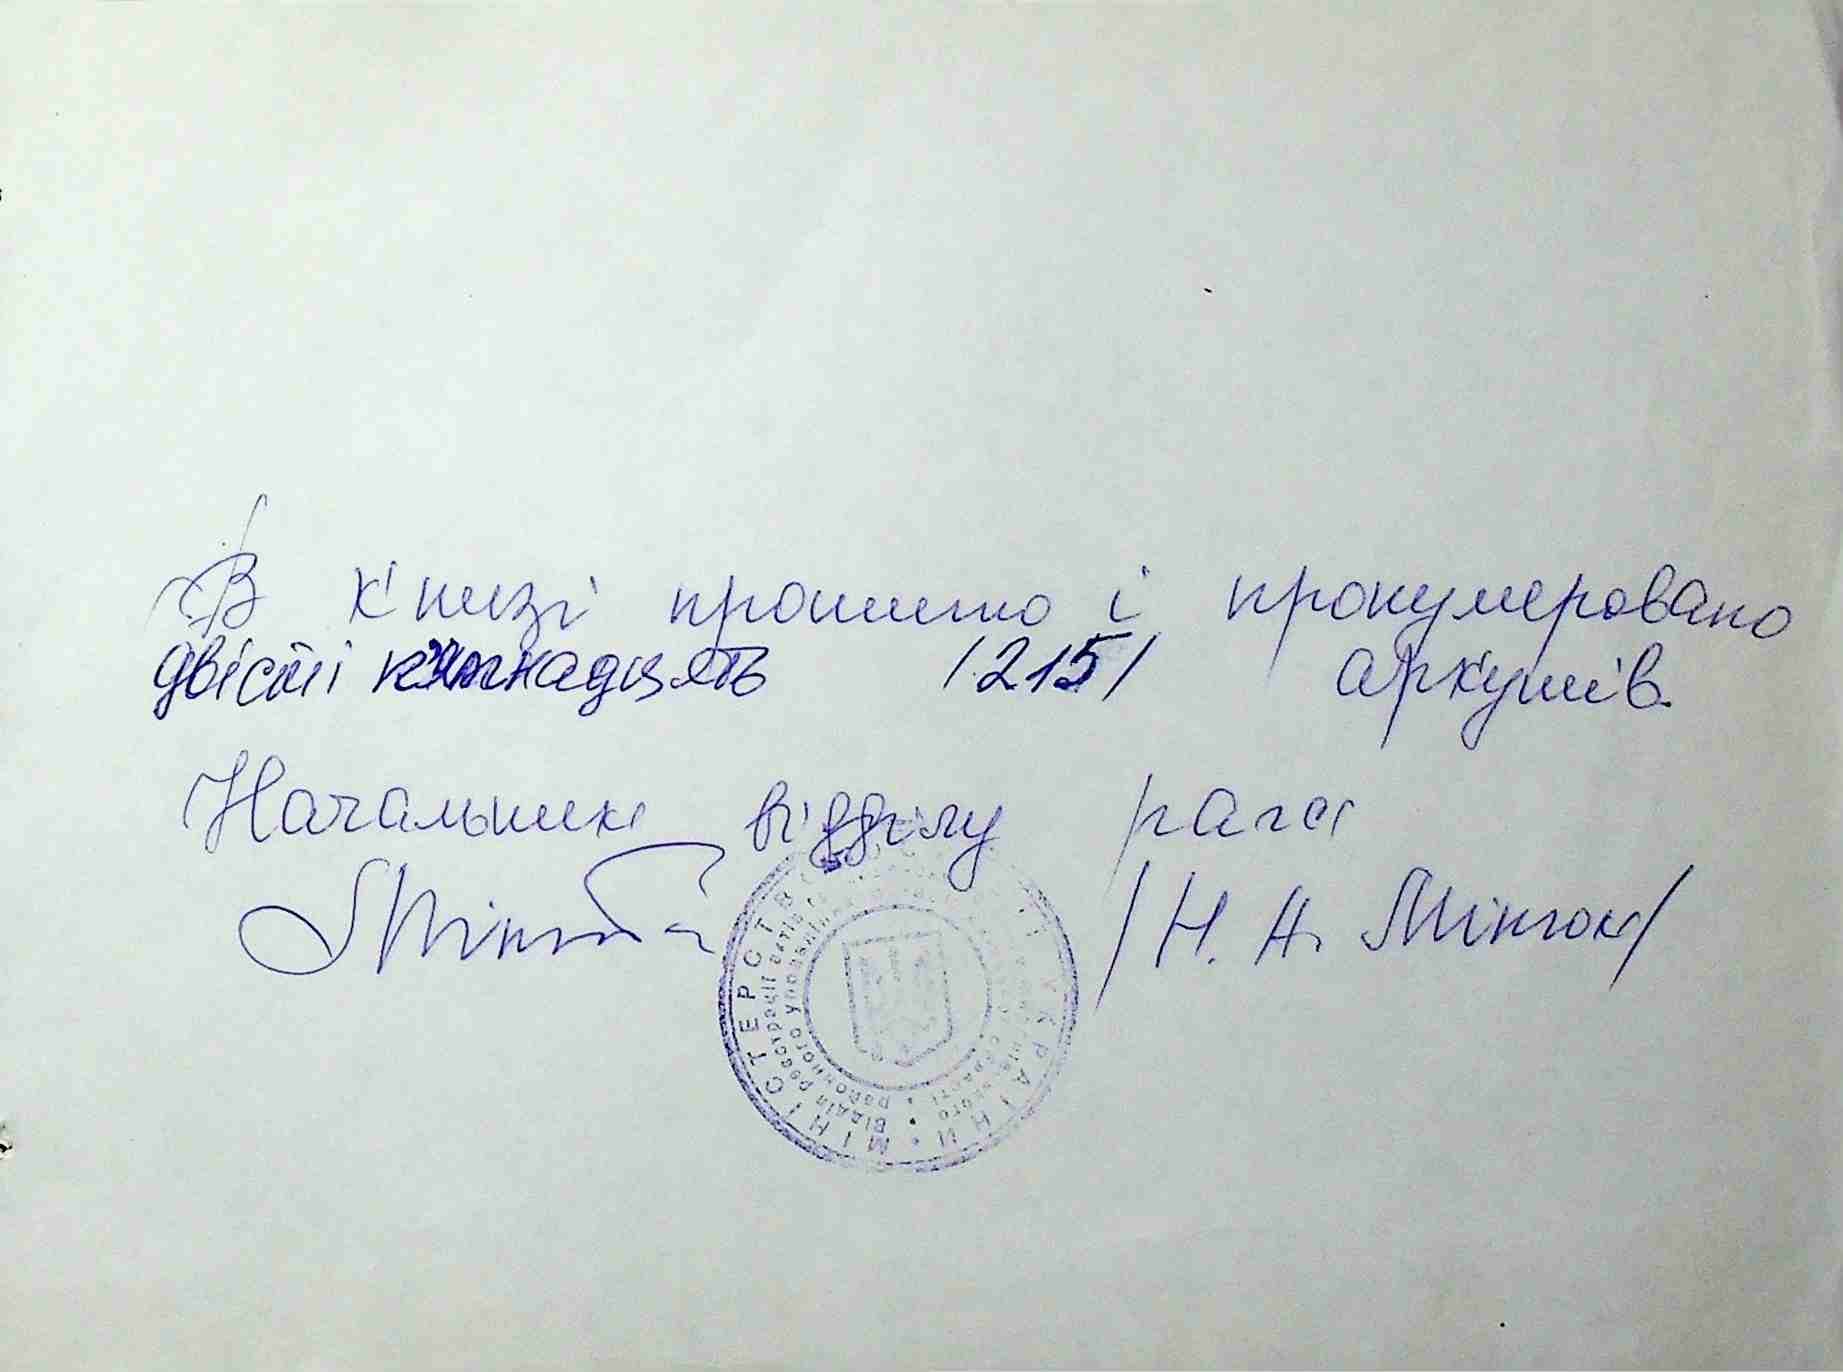 В книзі прошито і пронумеровано
двісті п'ятнадцять /215/ аркушів.
Начальник відділу рагс
/Н. А. Мінюк/
МІНІСТЕРСТВО УКРАЇНИ
Відділ реєстрації актів
районного області